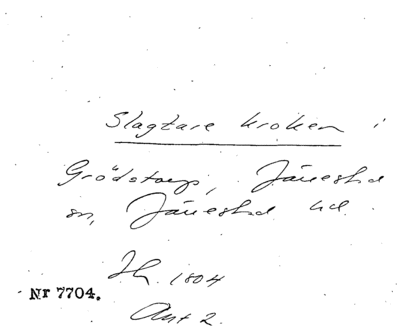 Slagtare kroken i
Grödstorp, Järrestad
sn, Järrestad hd.
Jh. 1804
Nr 7704.
Akt 2.